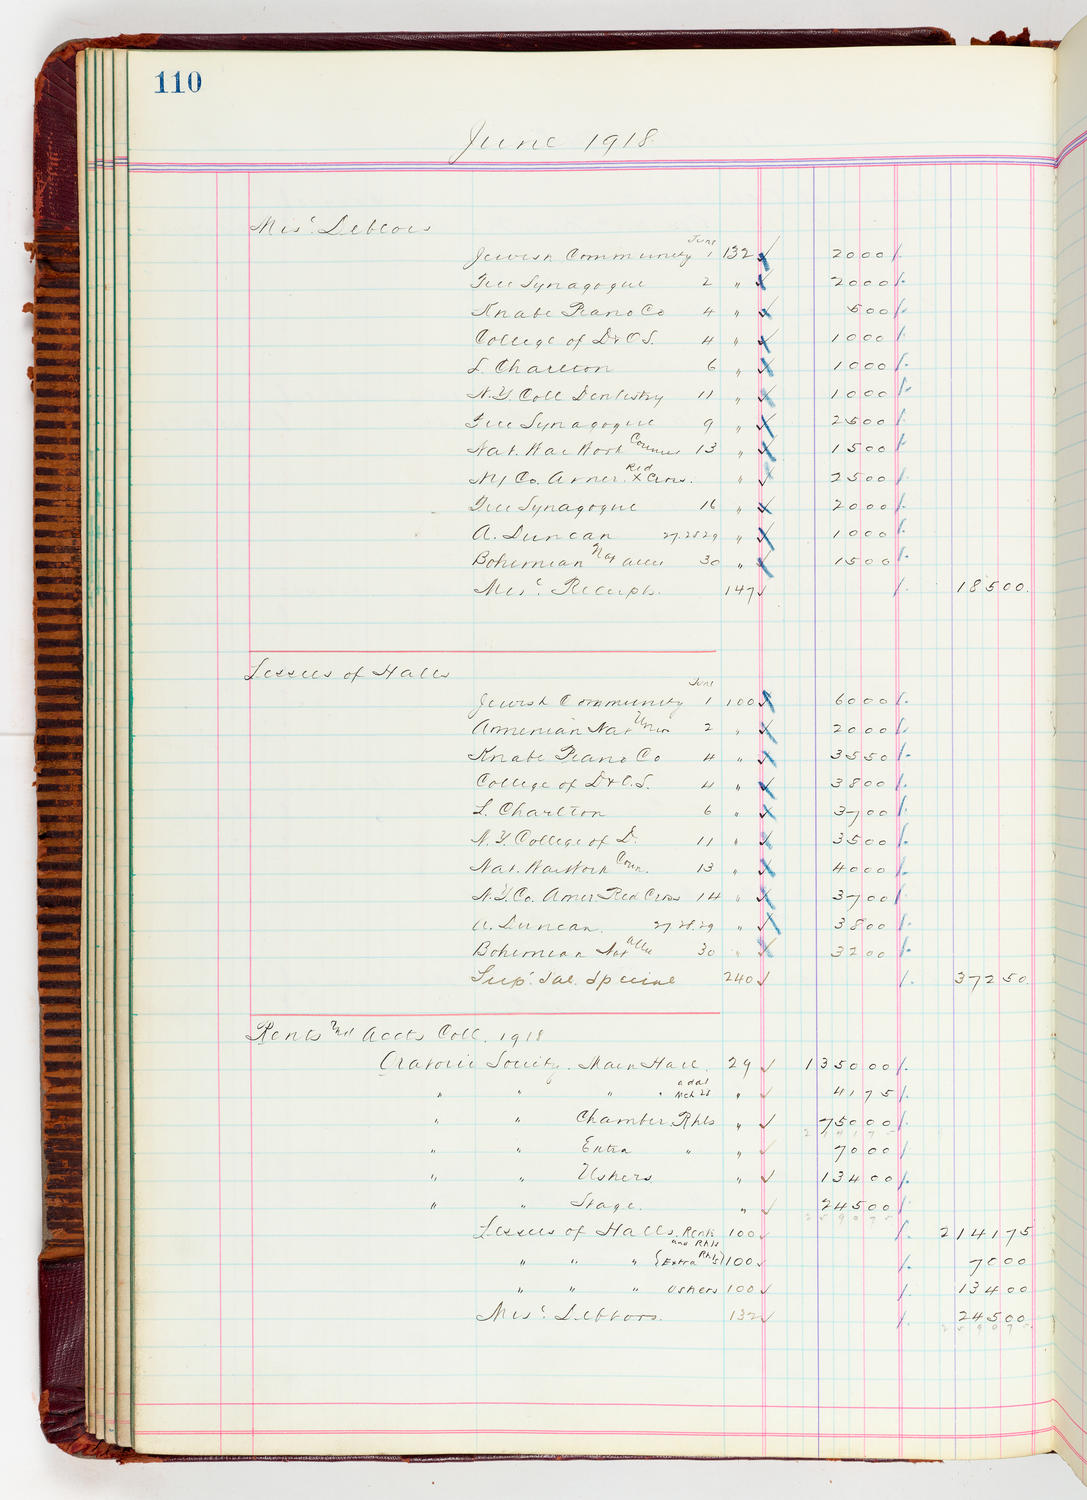 110
June 1918
Misc. Debtors
June
Jewish Community 1 132 2000
Free Synagogue 2 " 2000
Knabe Piano Co 4 " 500
College of D & O.S. 4 " 1000
L. Charlton 6 " 1000
N.Y. Coll Dentistry 11 " 1000
Free Synagogue 9 " 2500
Nat. War Work Council 13 " 1500
NY Co. Amer. Red X Cross. " 2500
Free Synagogue 16 " 2000
A. Duncan 27.28 29 " 1000
Bohemian Nat Alli 30 " 1500
Misc. Receipts. 147 18500.
Lessees of Halls
June
Jewish Community 1 100 6000
Armenian Nat Union 2 " 2000
Knabe Piano Co 4 " 3550
College of D & O.S. 4 " 3800
L. Charlton 6 " 3700
N.Y. College of D. 11 " 3500
Nat. War Work Coun. 13 " 4000
N.Y. Co. Amer Red Cross 14 " 3700
A. Duncan. 27 28.29 " 3800
Bohemian Nat Alli 30 " 3200
Sup. Sal. Special 240 37250.
Rents and Accts Coll. 1918
Oratorio Society. Main Hall. 29 135000
" " " " addl Mch 28 " 4175
" " Chamber Rhls " 75000
" " Extra " " 7000
" " Ushers " 13400
" " Stage. " 24500
Lessees of Halls. Rents and Rhls 100 214175
" " " (Extra Rhls) 100 7000
" " " Ushers 100 13400
Misc. Debtors. 132 24500